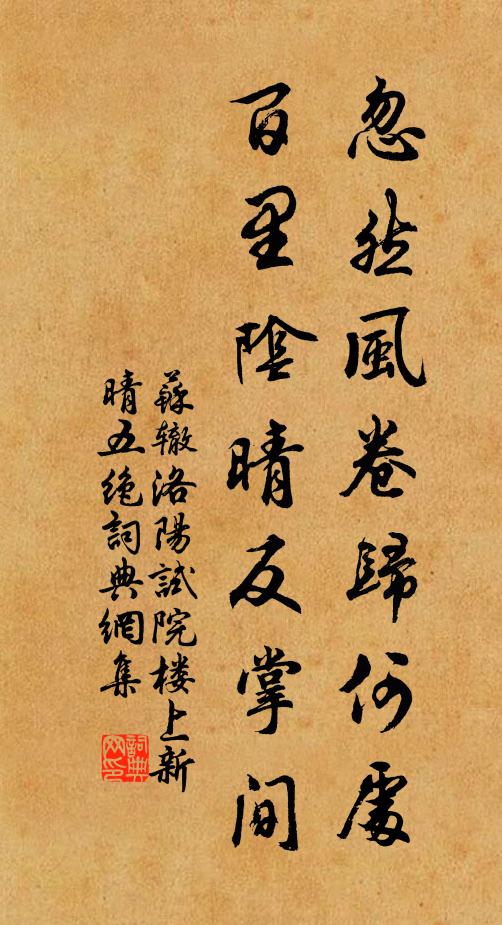 忽然風卷歸何處
百里陰晴反掌間
蘇辙洛陽試院楼上新
晴五絶詞典網集
詞典
网印